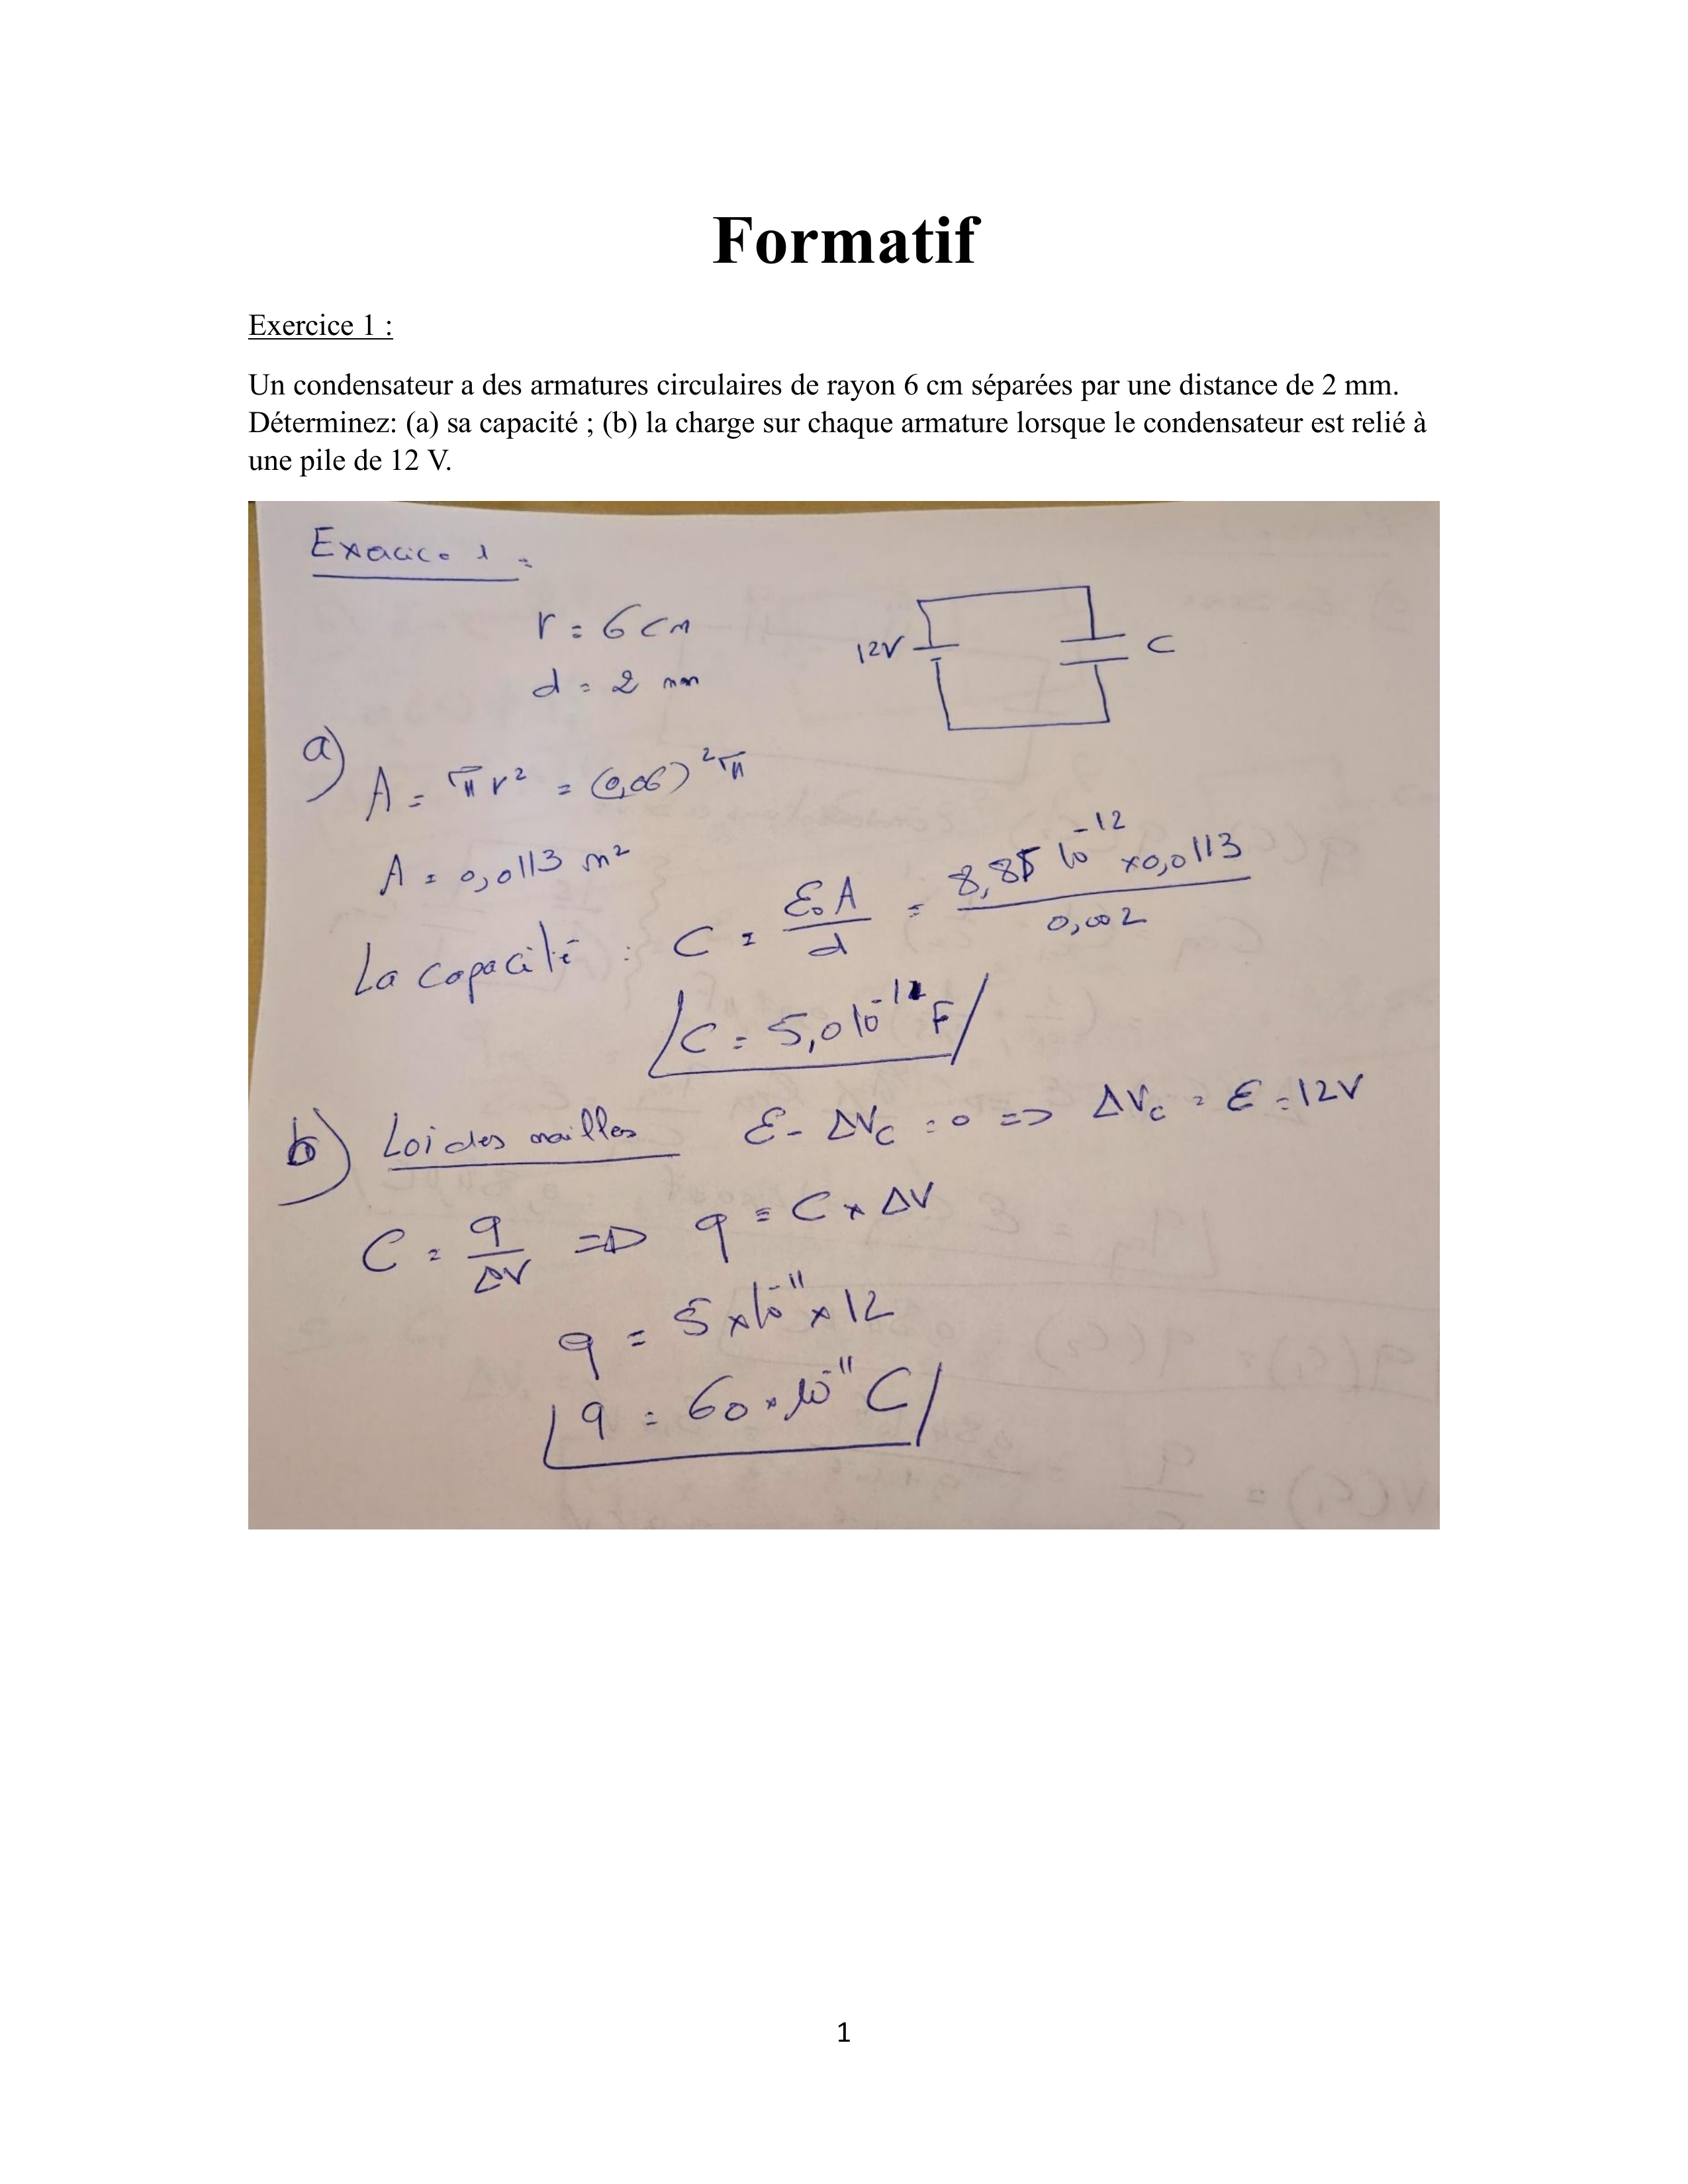 Formatif
Exercice 1 :
Un condensateur a des armatures circulaires de rayon 6 cm séparées par une distance de 2 mm.
Déterminez: (a) sa capacité ; (b) la charge sur chaque armature lorsque le condensateur est relié à
une pile de 12 V.
Exercice 1 =
r = 6 cm
d = 2 mm
12V
C
a)
A = π r² = (0,06)² π
A = 0,0113 m²
La capacité : C = ε₀ A / d = 8,85 10⁻¹² × 0,0113 / 0,002
C = 5,0 10⁻¹¹ F
b) Loi des mailles ε - ΔVc = 0 => ΔVc = ε = 12V
C = q / ΔV => q = C × ΔV
q = 5 × 10⁻¹¹ × 12
q = 60 × 10⁻¹¹ C
1